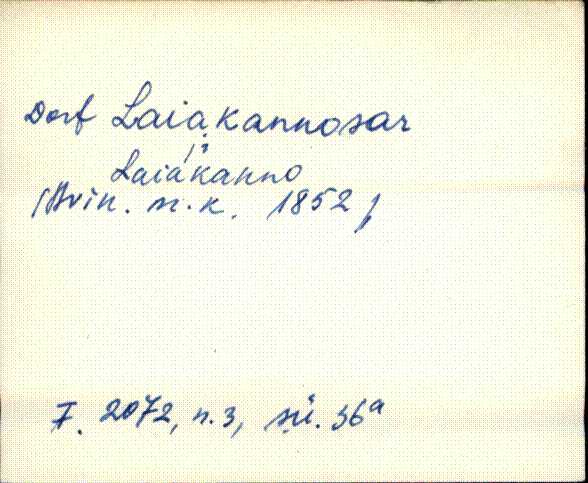 Dorf Laiakannosar
Laiakanno
n. k. 1852
F. 2072, n. 3, sü. 36a